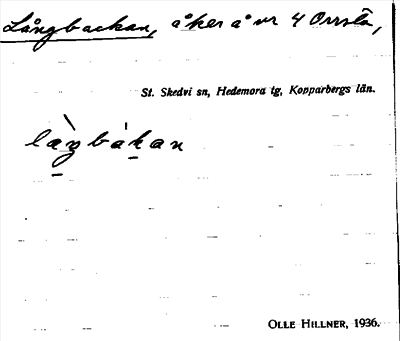 Långbackan, åker å nr 4 Orrsta,
St. Skedvi sn, Hedemora tg, Kopparbergs län.
OLLE HILLNER, 1936.